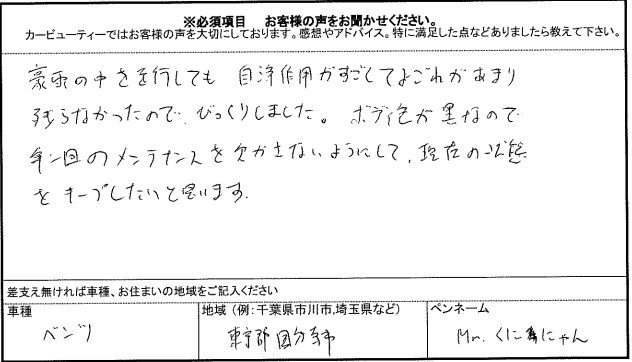 ※必須項目 お客様の声をお聞かせください。
カービューティーではお客様の声を大切にしております。感想やアドバイス。特に満足した点などありましたら教えて下さい。
豪雨の中を走行しても 自浄作用がすごくてよごれがあまり
残らなかったので、びっくりしました。 ボディ色が黒なので
年一回のメンテナンスを欠かさないようにして、現在の状態
をキープしたいと思います。
差支え無ければ車種、お住まいの地域をご記入ください
車種 地域 （例:千葉県市川市,埼玉県など） ペンネーム
ベンツ 東京都国分寺市 Mr. くにちにゃん